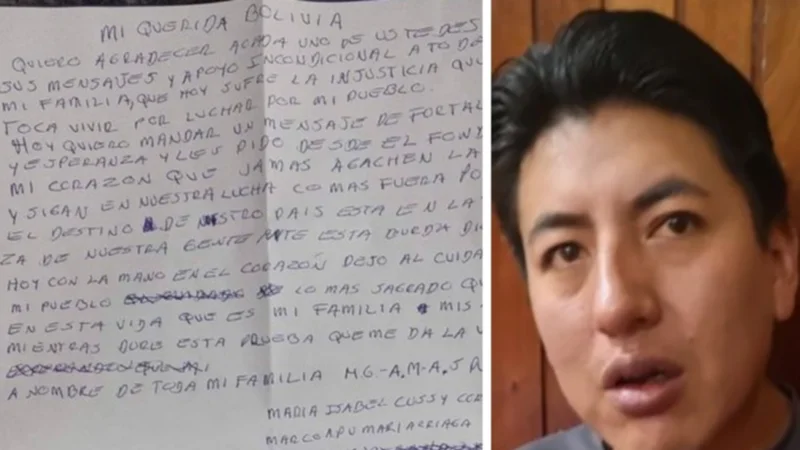 MI QUERIDA BOLIVIA
QUIERO AGRADECER ACADA UNO DE USTEDES
SUS MENSAJES Y APOYO INCONDICIONAL A TODE
MI FAMILIA, QUE HOY SUFRE LA INJUSTICIA QU
TOCA VIVIR POR LUCHAR POR MI PUEBLO.
HOY QUIERO MANDAR UN MENSAJE DE FORTAL
Y ESPERANZA Y LES PIDO DESDE EL FOND
MI CORAZON QUE JAMAS AGACHEN LA
Y SIGAN EN NUESTRA LUCHA CO MAS FUERA PO
EL DESTINO DE PAIS ESTA EN LA
ZA DE NUESTRA GENTE ANTE ESTA BURDA DI
HOY CON LA MANO EN EL CORAZÓN DEJO AL CUIDA
MI PUEBLO LO MAS SAGRADO QU
EN ESTA VIDA QUE ES MI FAMILIA MIS
MIENTRAS DURE ESTA PRUEBA QUE ME DA LA V
A NOMBRE DE TODA MI FAMILIA M.G.-A.M-A.J
MARIA ISABEL CUSSY
MARCO PUMARI ARRIAGA